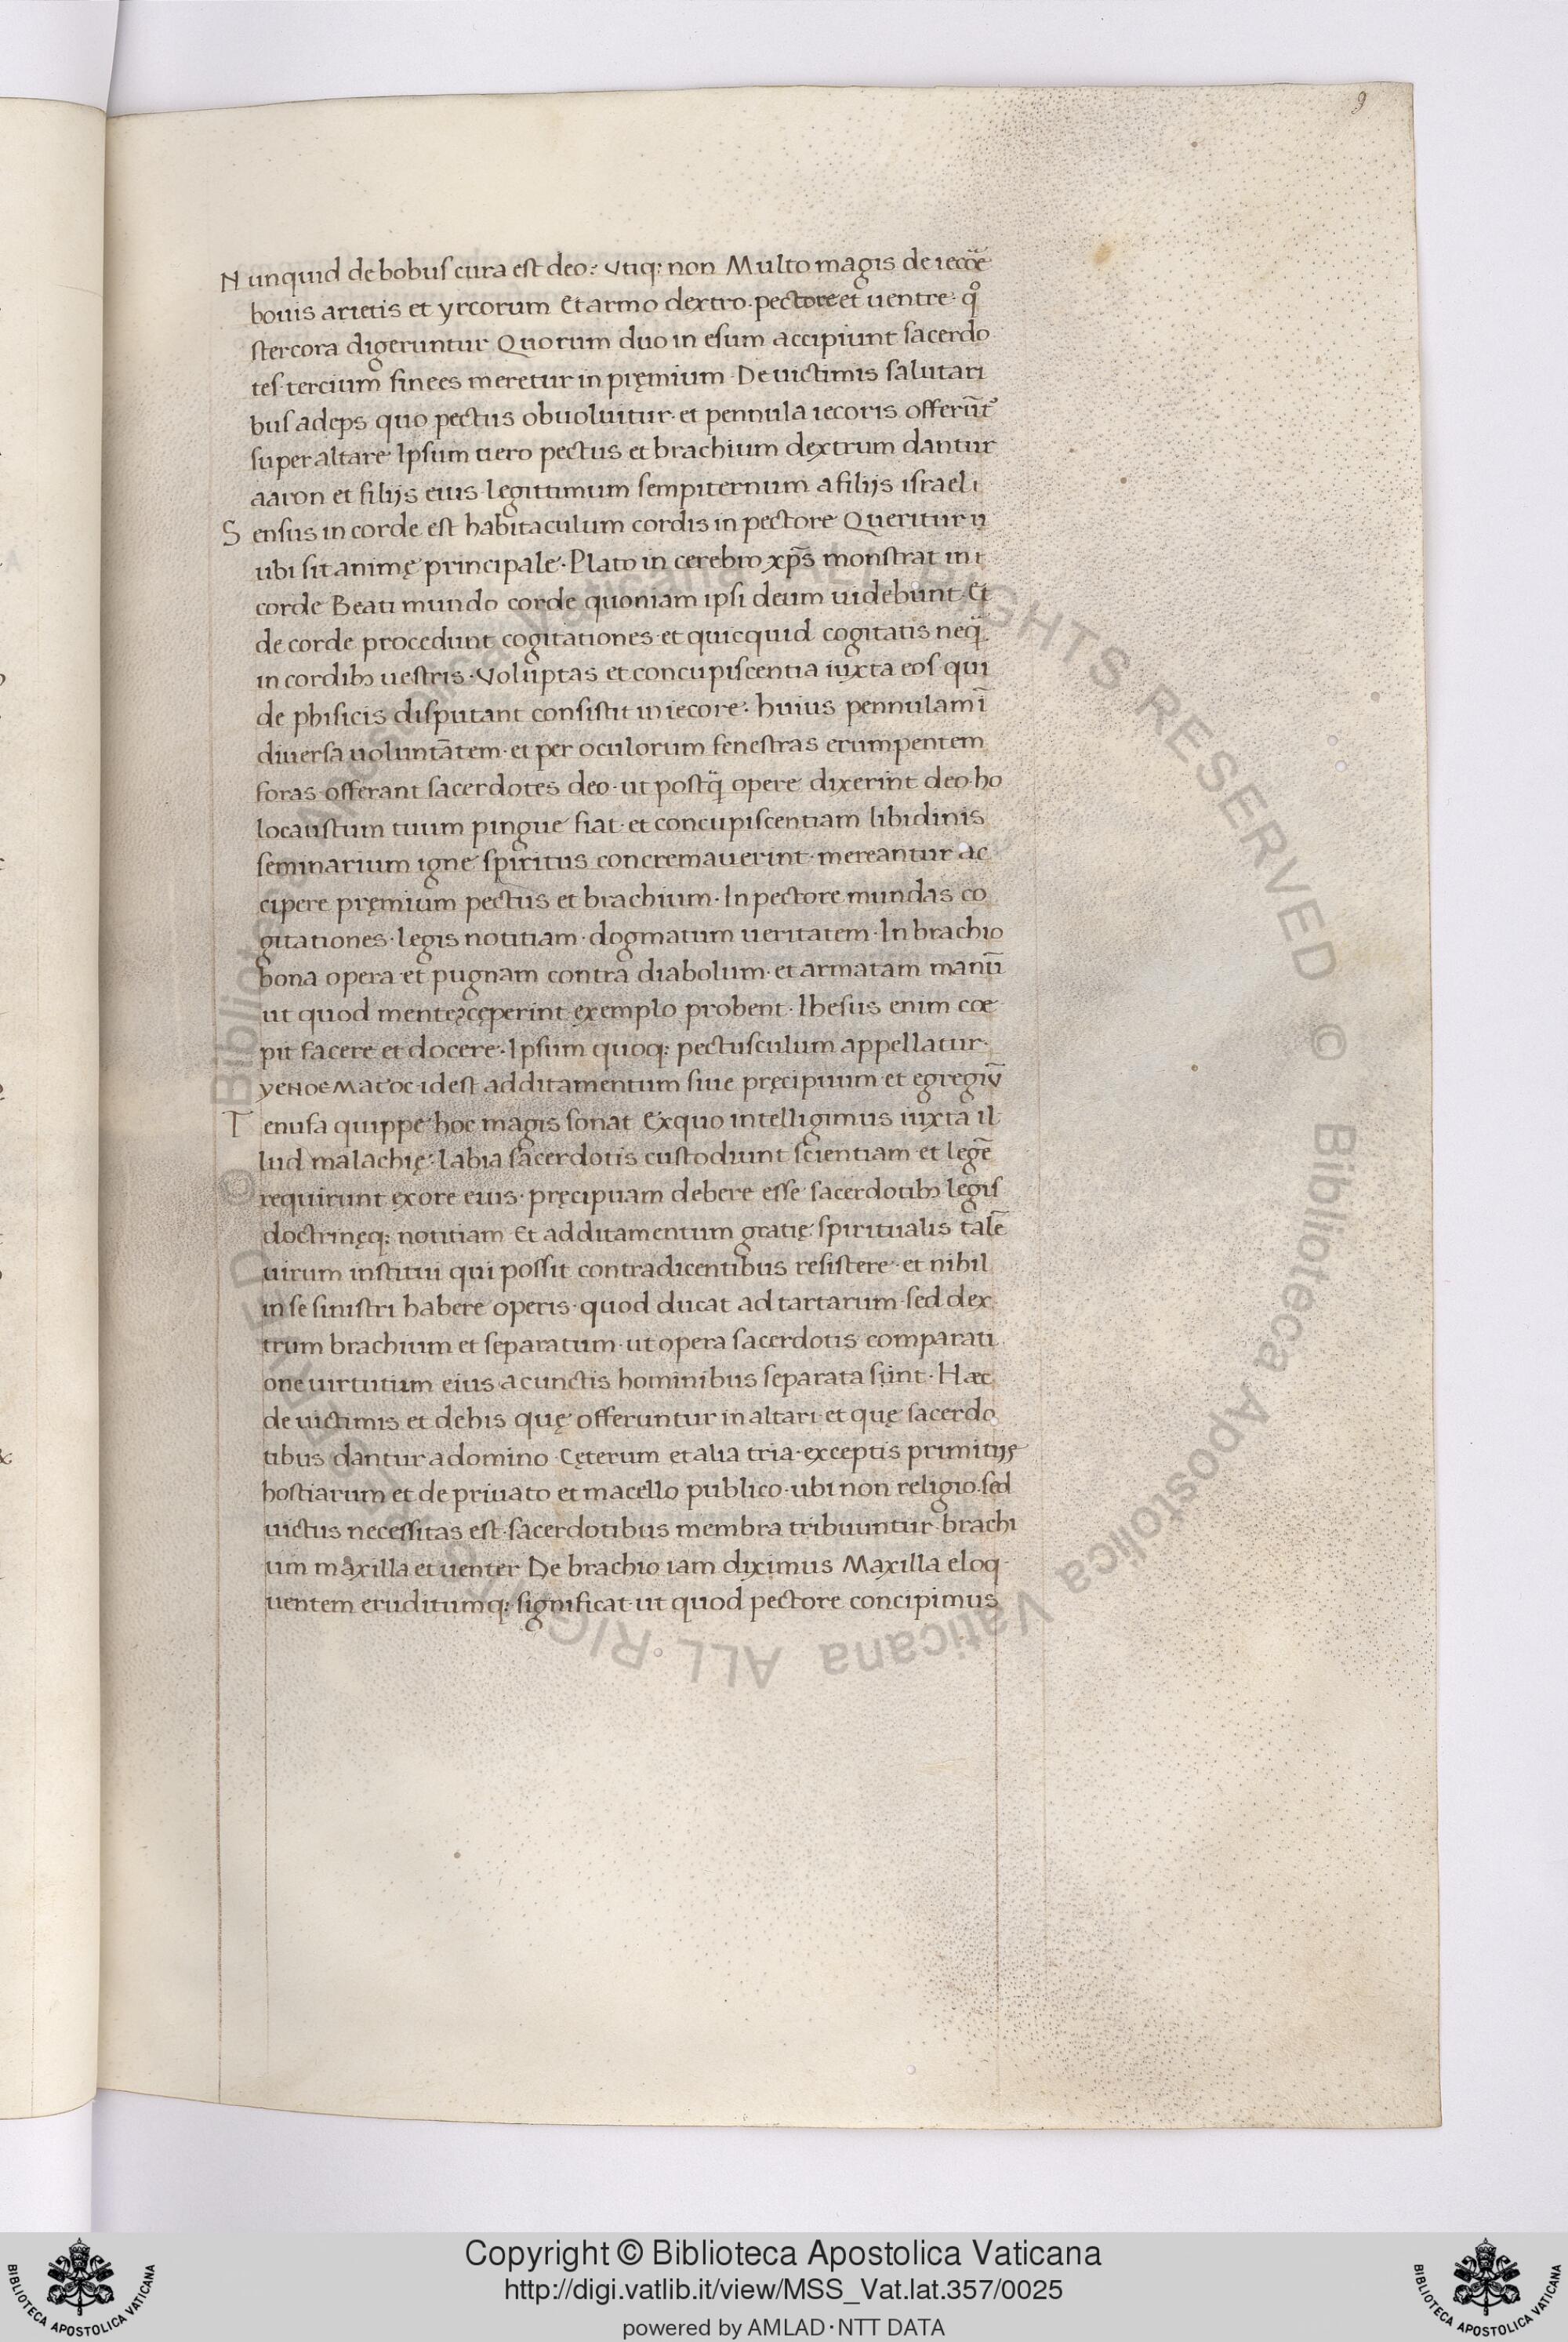 9
Nunquid de bobus cura est deo: utiq: non Multo magis de iecore
bouis arietis et yrcorum Et armo dextro · pectore et uentre · qͦ
stercora digeruntur Quorum duo in esum accipiunt sacerdo
tes · tercium finees meretur in pręmium · De uictimis salutari
bus adeps quo pectus obuoluitur · et pennula iecoris offerūt᷑
super altare · Ipsum uero pectus et brachium dextrum dantur
aaron et filijs eius · legittimum sempiternum a filijs israel ·
Sensus in corde est habitaculum cordis in pectore · Queritur
ubi sit animę principale · Plato in cerebro xp̄s monstrat in
corde Beati mundo corde quoniam ipsi deum uidebunt · Et
de corde procedunt cogitationes · et quicquid cogitatis neq̈
in cordibꝫ uestris · Voluptas et concupiscentia iuxta eos qui
de phisicis disputant consistit in iecore · huius pennulam ī
diuersa uoluntātem · et per oculorum fenestras erumpentem
foras offerant sacerdotes deo · ut postq̈ opere dixerint deo · ho
locaustum tuum pingue fiat · et concupiscentiam libidinis
seminarium igne spiritus concremauerint · mereantur ac
cipere pręmium pectus et brachium · In pectore mundas co
gitationes · legis notitiam · dogmatum ueritatem · In brachio
bona opera et pugnam contra diabolum · et armatam manū
ut quod mente ꝯcęperint exemplo probent · Ihesus enim coe
pit facere et docere · Ipsum quoq: pectusculum appellatur ·
idest additamentum siue pręcipuum et egregiū
Tenufa quippe hoc magis sonat Ex quo intelligimus iuxta il
lud malachię: labia sacerdotis custodiunt scientiam et legē
requirunt ex ore eius · pręcipuam debere esse sacerdotibꝫ legis
doctrinęq: notitiam Et additamentum gratię spiritualis talē
uirum institui qui possit contradicentibus resistere · et nihil
in se sinistri habere operis · quod ducat ad tartarum · sed dex
trum brachium et separatum · ut opera sacerdotis comparati
one uirtutum eius a cunctis hominibus separata sint · Hæc
de uictimis et de his quę offeruntur in altari · et quę sacerdo
tibus dantur a domino · Cęterum et alia tria · exceptis primitijs
hostiarum et de priuato et macello publico · ubi non religio · sed
uictus necessitas est · sacerdotibus membra tribuuntur · brachi
um maxilla et uenter De brachio iam diximus Maxilla eloq
uentem eruditumq: significat ut quod pectore concipimus
© Biblioteca Apostolica Vaticana ALL RIGHTS RESERVED
Copyright © Biblioteca Apostolica Vaticana
http://digi.vatlib.it/view/MSS_Vat.lat.357/0025
powered by AMLAD · NTT DATA
BIBLIOTECA APOSTOLICA VATICANA
BIBLIOTECA APOSTOLICA VATICANA